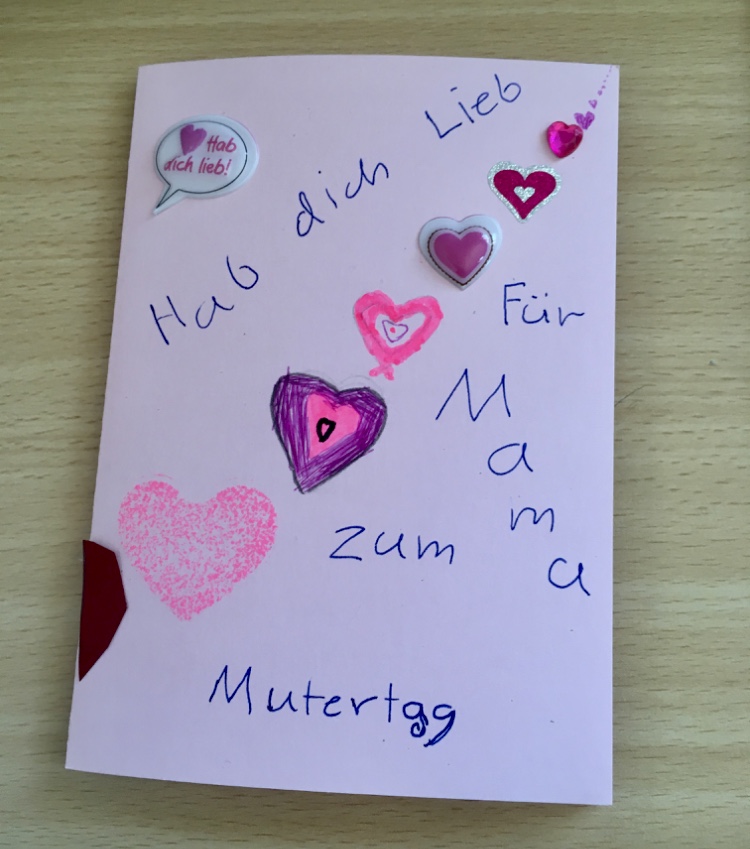 Hab
dich lieb!
Hab dich Lieb
Für
Mama
zum
Mutertag